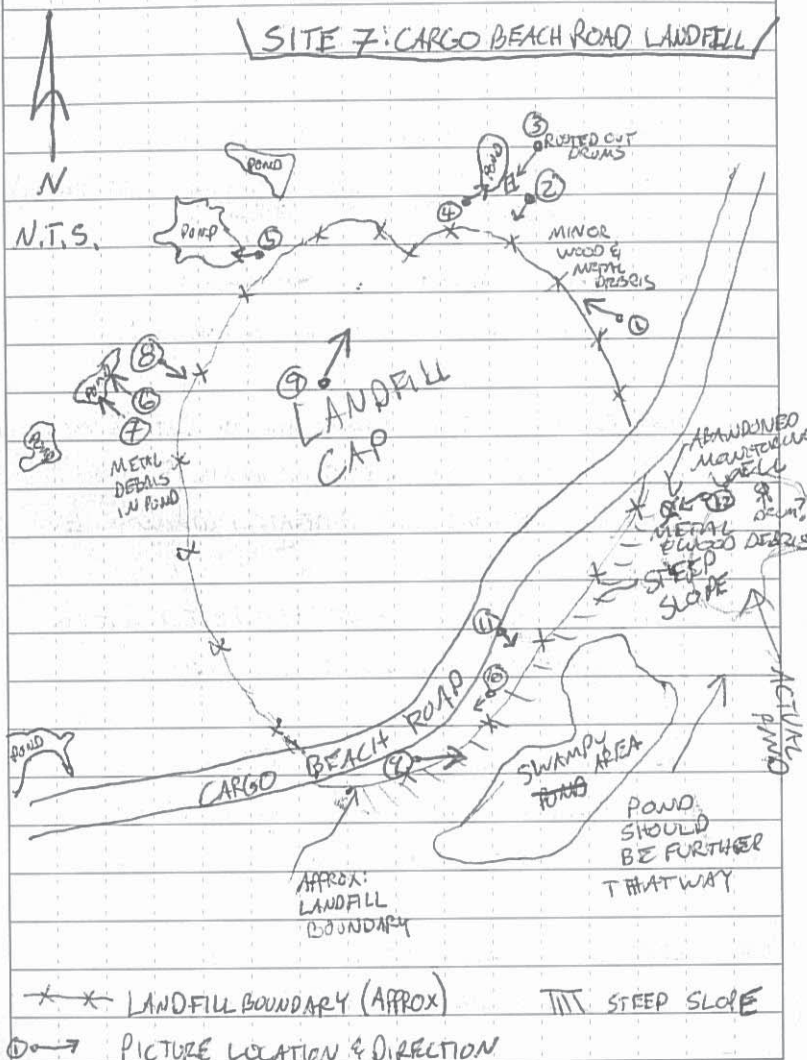 SITE 7: CARGO BEACH ROAD LANDFILL
N
N.T.S.
POND
POND
3
ROTTED OUT
DRUMS
2
4
POND
5
MINOR
WOOD &
METAL
DEBRIS
1
8
POND
6
7
METAL
DEBRIS
IN POND
9
LANDFILL
CAP
ABANDONED
MONITORING
WELL
12
DRUM
METAL
& WOOD DEBRIS
STEEP
SLOPE
11
10
9
CARGO BEACH ROAD
POND
SWAMPY AREA
POND
ACTUAL
POND
POND
SHOULD
BE FURTHER
THAT WAY
APPROX:
LANDFILL
BOUNDARY
LANDFILL BOUNDARY (APPROX)
STEEP SLOPE
1 PICTURE LOCATION & DIRECTION